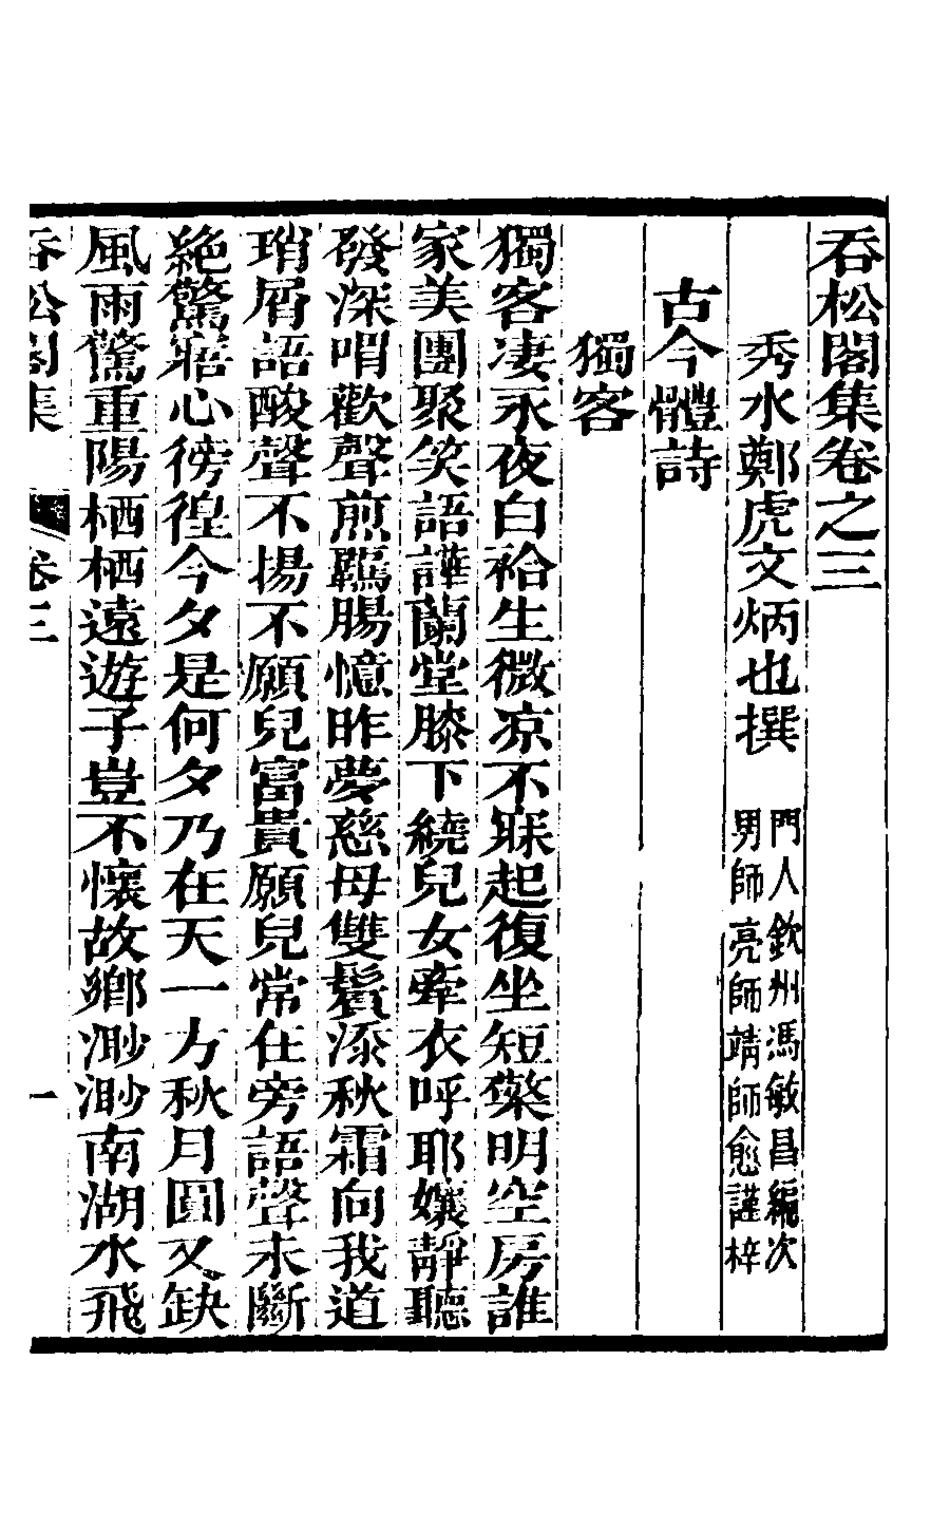 吞松閣集卷之三
秀水鄭虎文炳也撰
門人欽州馮敏昌編次
男師亮師靖師愈謹梓
古今體詩
獨客
獨客凄永夜白袷生微凉不寐起復坐短檠明空房誰
家美團聚笑語譁蘭堂膝下繞兒女牽衣呼耶孃靜聽
發深喟歡聲煎羈腸憶昨夢慈母雙鬢添秋霜向我道
瑣屑語酸聲不揚不願兒富貴願兒常在旁語聲未斷
絶驚寤心徬徨今夕是何夕乃在天一方秋月圓又缺
風雨驚重陽栖栖遠遊子豈不懷故鄉渺渺南湖水飛
吞松閣集
卷三
一